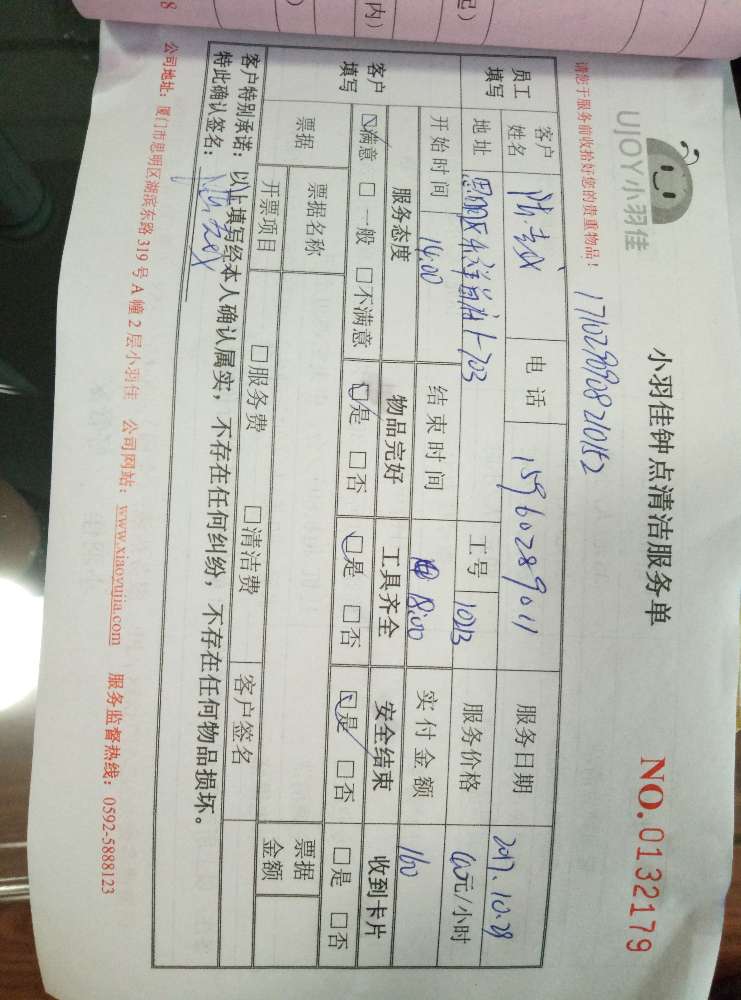 UJOY小羽佳
小羽佳钟点清洁服务单
NO.0132179
请您于服务前收拾好您的贵重物品！
员工填写
客户姓名
电话 15960289011
服务日期 2017.10.28
地址
工号 10213
服务价格 40元/小时
开始时间 14:00
结束时间 18:00
实付金额 160
客户填写
服务态度 物品完好 工具齐全 安全结束 收到卡片
☑满意 □一般 □不满意 ☑是 □否 ☑是 □否 ☑是 □否 □是 □否
票据
票据名称
票据金额
开票项目 □服务费 □清洁费 客户签名
客户特别承诺：以上填写经本人确认属实，不存在任何纠纷，不存在任何物品损坏。
特此确认签名：
公司地址：厦门市思明区湖滨东路319号A幢2层小羽佳 公司网站：www.xiaoyujia.com 服务监督热线：0592-5888123